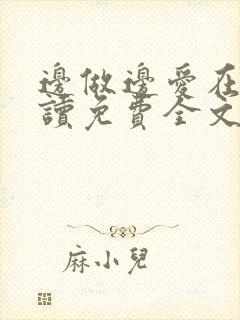 邊做邊愛在
讀免費全文
麻小兒